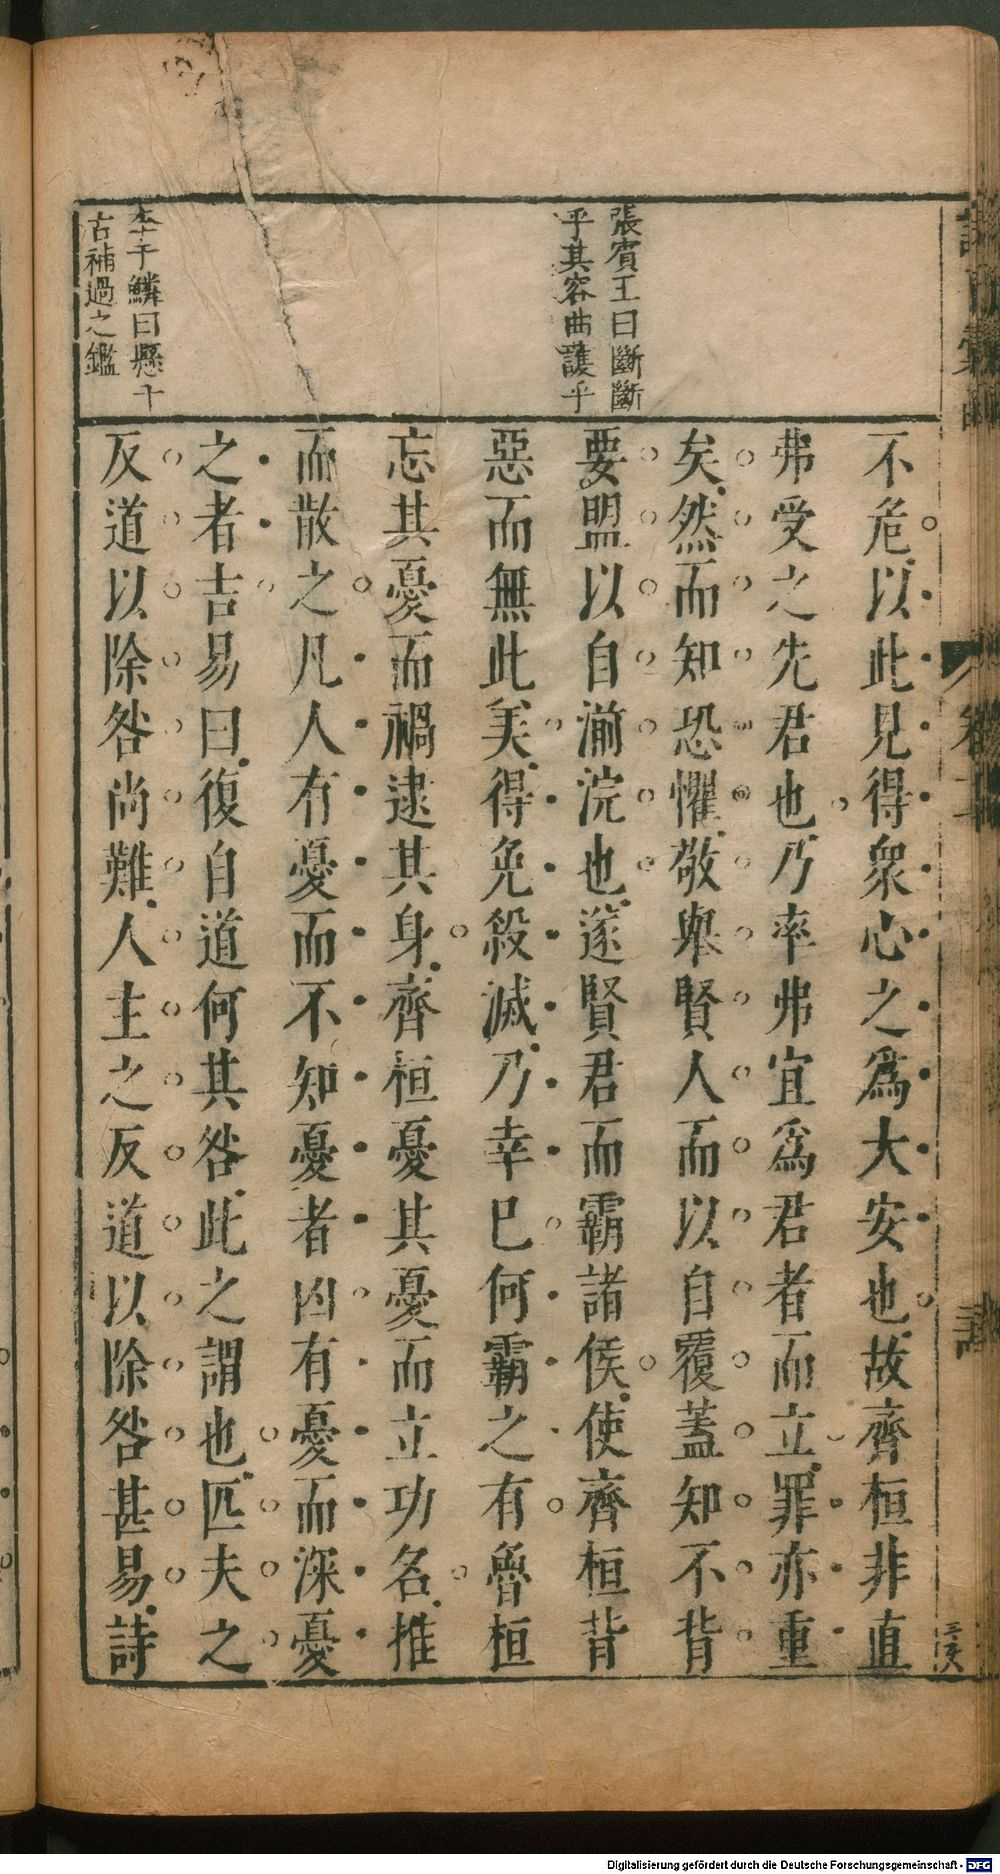 張賓王曰斷斷
乎其容曲護乎
李于鱗曰懸千
古補過之鑑
不危以此見得衆心之爲大安也故齊桓非直
弗受之先君也乃率弗宜爲君者而立罪亦重
矣然而知恐懼敬舉賢人而以自覆蓋知不背
要盟以自湔浣也遂賢君而霸諸侯使齊桓背
惡而無此美得免殺滅乃幸巳何霸之有魯桓
忘其憂而禍逮其身齊桓憂其憂而立功名推
而散之凡人有憂而不知憂者凶有憂而深憂
之者吉易曰復自道何其咎此之謂也匹夫之
反道以除咎尚難人主之反道以除咎甚易詩
Digitalisierung gefördert durch die Deutsche Forschungsgemeinschaft - DFG